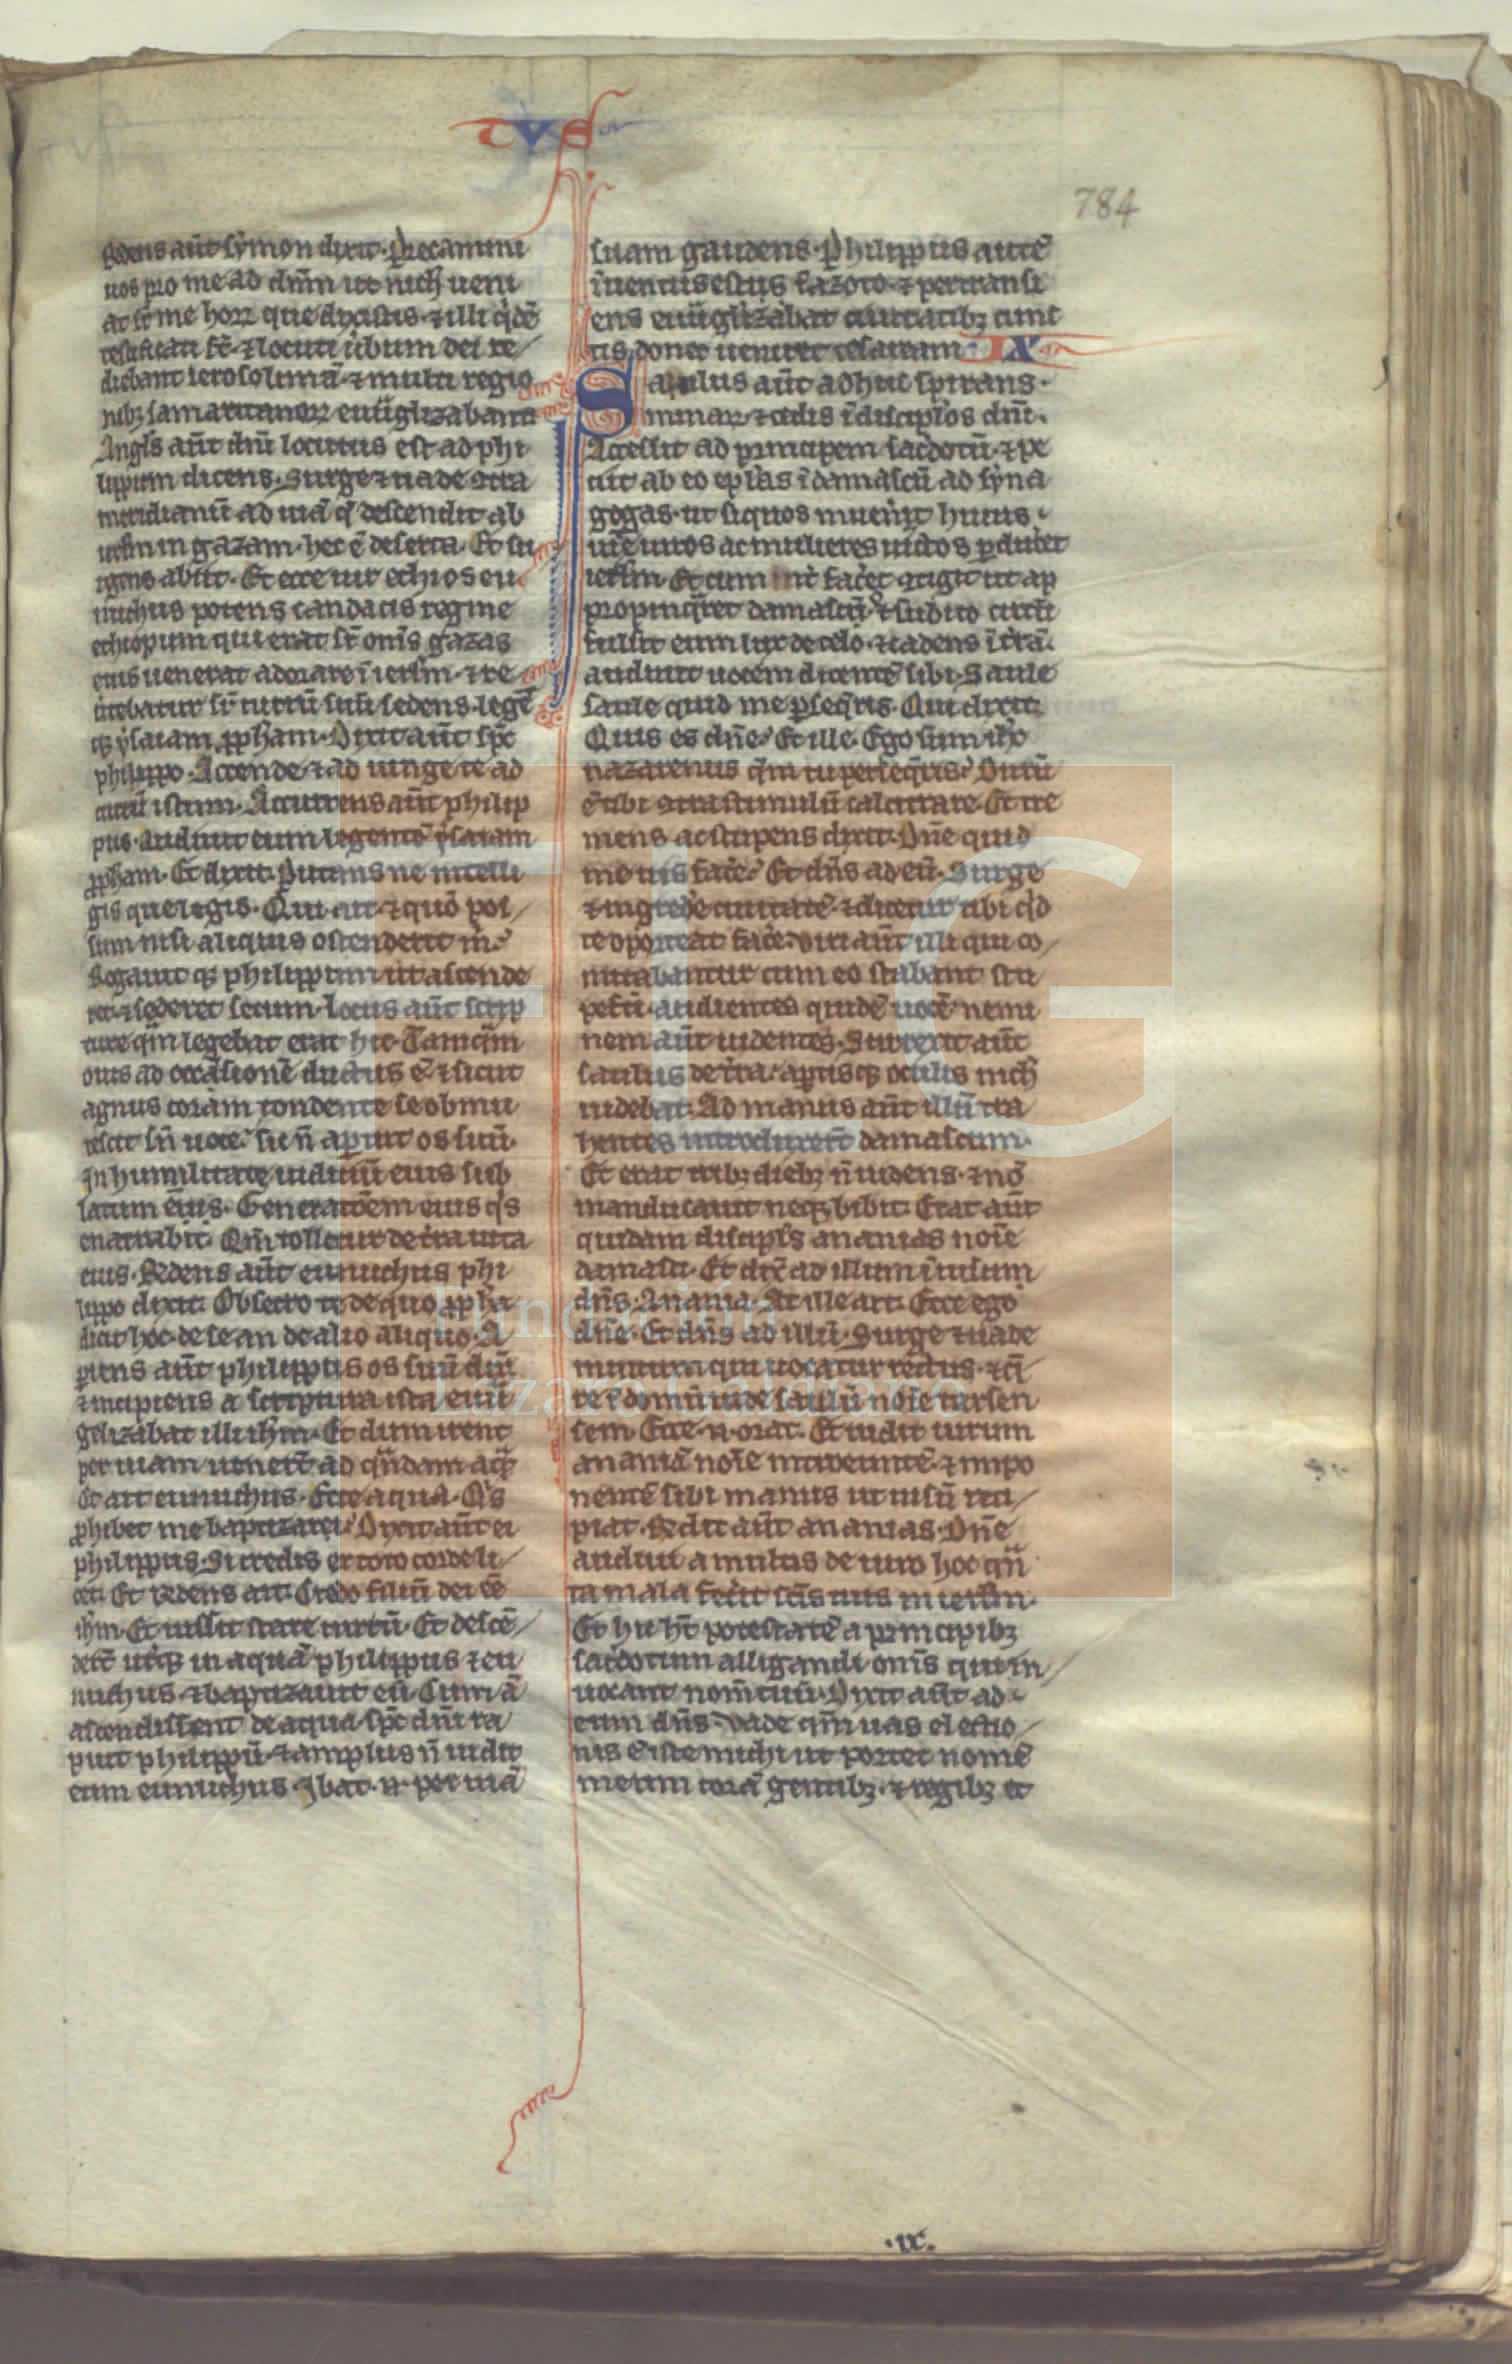 TVS
784
Rñdens aũt sẏmon dixit. Precamini
uos pro me ad dñm ut nich ueni
at sr̃ me hoꝝ que dixistis. ⁊ illi qͥdẽ
testificati st̃. ⁊ locuti ũbum dei re
diebant ierosolimã. ⁊ multi regio
nibꝫ samaritanoꝝ euãglizabant
Angl's aũt dñi locutus est ad phi
lippum dicens. Surge ⁊ uade ꝯtra
meridianũ ad uiã q̃ descendit ab
ierl'm in gazam. hec ẽ deserta. Et su
rgens abiit. Et ecce uir ethiops eu
nuchus potens candacis regine
ethiopum qui erat sr̃ om̃s gazas
eius uenerat adorare ĩ ierl'm. ⁊ re
ũtebatur sr̃ currũ suũ sedens. legẽs
qꝫ ẏsaiam ꝓpham. Dixit aũt sp̃c
philippo. Accende ⁊ ad iunge te ad
currũ istum. Accurrens aũt philip
pus. Audiuit eum legentẽ ẏsaiam
ꝓpham. Et dixit. Putas ne intelli
gis que legis. Qui ait. ⁊ quõ pos
sum nisi aliquis ostenderit m̃.
Rogauit qꝫ philippum ut ascende
ret ⁊ sederet secum. Locus aũt scrip
ture qͣm legebat erat hic. Tamqͣm
ouis ad occasionẽ ductus ẽ ⁊ sicut
agnus coram tondente se obmu
tescit sñ uoce. sic ñ aperuit os suũ.
In humilitate iudiciũ eius sub
latum eius. Generatõem eius qͥs
enarrabit. Qm̃ tolletur de t̃ra uita
eius. Rñdens aũt eunuchus phi
lippo dixit. Obsecro te de quo ꝓpha
dicit hoc de se an de alio aliquo. A
periens aũt philippus os suũ dũ
⁊ incipiens a scriptura ista euã
gelizabat illi ihm̃. Et dum irent
per uiam uenert̃ ad qͣndam aqͣ
Et ait eunuchus. Ecce aqua. Qͥs
ꝓhibet me baptizari. Dixit aũt ei
philippus. Si credis ex toto corde li
cet. Et rñdens ait. Credo filiũ dei eẽ
ihm̃. Et iussit stare currũ. Et descẽ
dert̃ utͥqꝫ in aquã philippus ⁊ eu
nuchus. ⁊ baptizauit eũ. Cum ã
ascendissent de aqua sp̃c dñi ra
puit philippũ. ⁊ amplius ñ uidit
eum eunuchus. Ibat .n. per uiã
suam gaudens. Philippus autẽ
ĩuentus est in azoto. ⁊ pertransi
ens euãglizabat ciuitatibꝫ cunc
tis. donec ueniret cesaream. IX
Saulus aũt adhuc spirans.
minaꝝ ⁊ cedis ĩ discipl'os dñi.
Accessit ad principem sacdotũ. ⁊ pe
tiit ab eo epl'as ĩ damascũ ad sẏna
gogas. ut siquos inuenr̃et huius
uie uiros ac mulieres uictos ꝑducẽt
ierl'm. Et cum iñ facẽt ꝯtigit ut ap
propinqͣret damascũ. ⁊ subito circũ
fulsit eum lux de celo. ⁊ cadens ĩ t̃rã.
audiuit uocem dicentẽ sibi. Saule
saule quid me ꝑseqͥris. Qui dixit.
Quis es dñe. Et ille. Ego sum ihc̃
nazarenus qͣm tu persequeris. Durũ
ẽ tibi ꝯtra stimulũ calcitrare. Et tre
mens ac stupens dixit. Dñe quid
me uis facẽ. Et dñs ad eũ. Surge
⁊ ingrede ciuitatẽ. ⁊ dicetur tibi qͥd
te oporteat facẽ. Viri aũt illi qui co
mitabantur cum eo stabant stu
pefcĩ. audientes quidẽ uocẽ nemi
nem aũt uidentes. Surrexit aũt
saulus de t̃ra. aꝑtisqꝫ oculis nich
uidebat. Ad manus aũt illũ tra
hentes introduxert̃ damascum.
Et erat tribꝫ diebꝫ ñ uidens. ⁊ nõ
manducauit neqꝫ bibit. Erat aũt
quidam discipl's ananias noĩe
damasci. Et dix̃ ad illum ĩ uisum
dñs. Anania. At ille ait. Ecce ego
dñe. Et dñs ad illũ. Surge ⁊ uade
in uicum qui uocatur rectus. ⁊ q̃
re ĩ domũ iude saulũ noĩe tarsen
sem. Ecce .n. orat. Et uidit uirum
ananiã noĩe introeuntẽ. ⁊ inpo
nentẽ sibi manus ut uisũ reci
piat. Rñdit aũt ananias. Dñe
audiui a multis de uiro hoc qͣn
ta mala fecẽit sc̃is tuis in ierl'm.
Et hic ht̃ potestatẽ a principibꝫ
sacdotum alligandi om̃s qui in
uocant nom̃ tuũ. Dixit aũt ad
eum dñs. Vade qm̃ uas electio
nis ẽ iste michi ut portet nomẽ
meum corã gentibꝫ. ⁊ regibꝫ et
FLG
Fundación
Lázaro Galdiano
.ix.